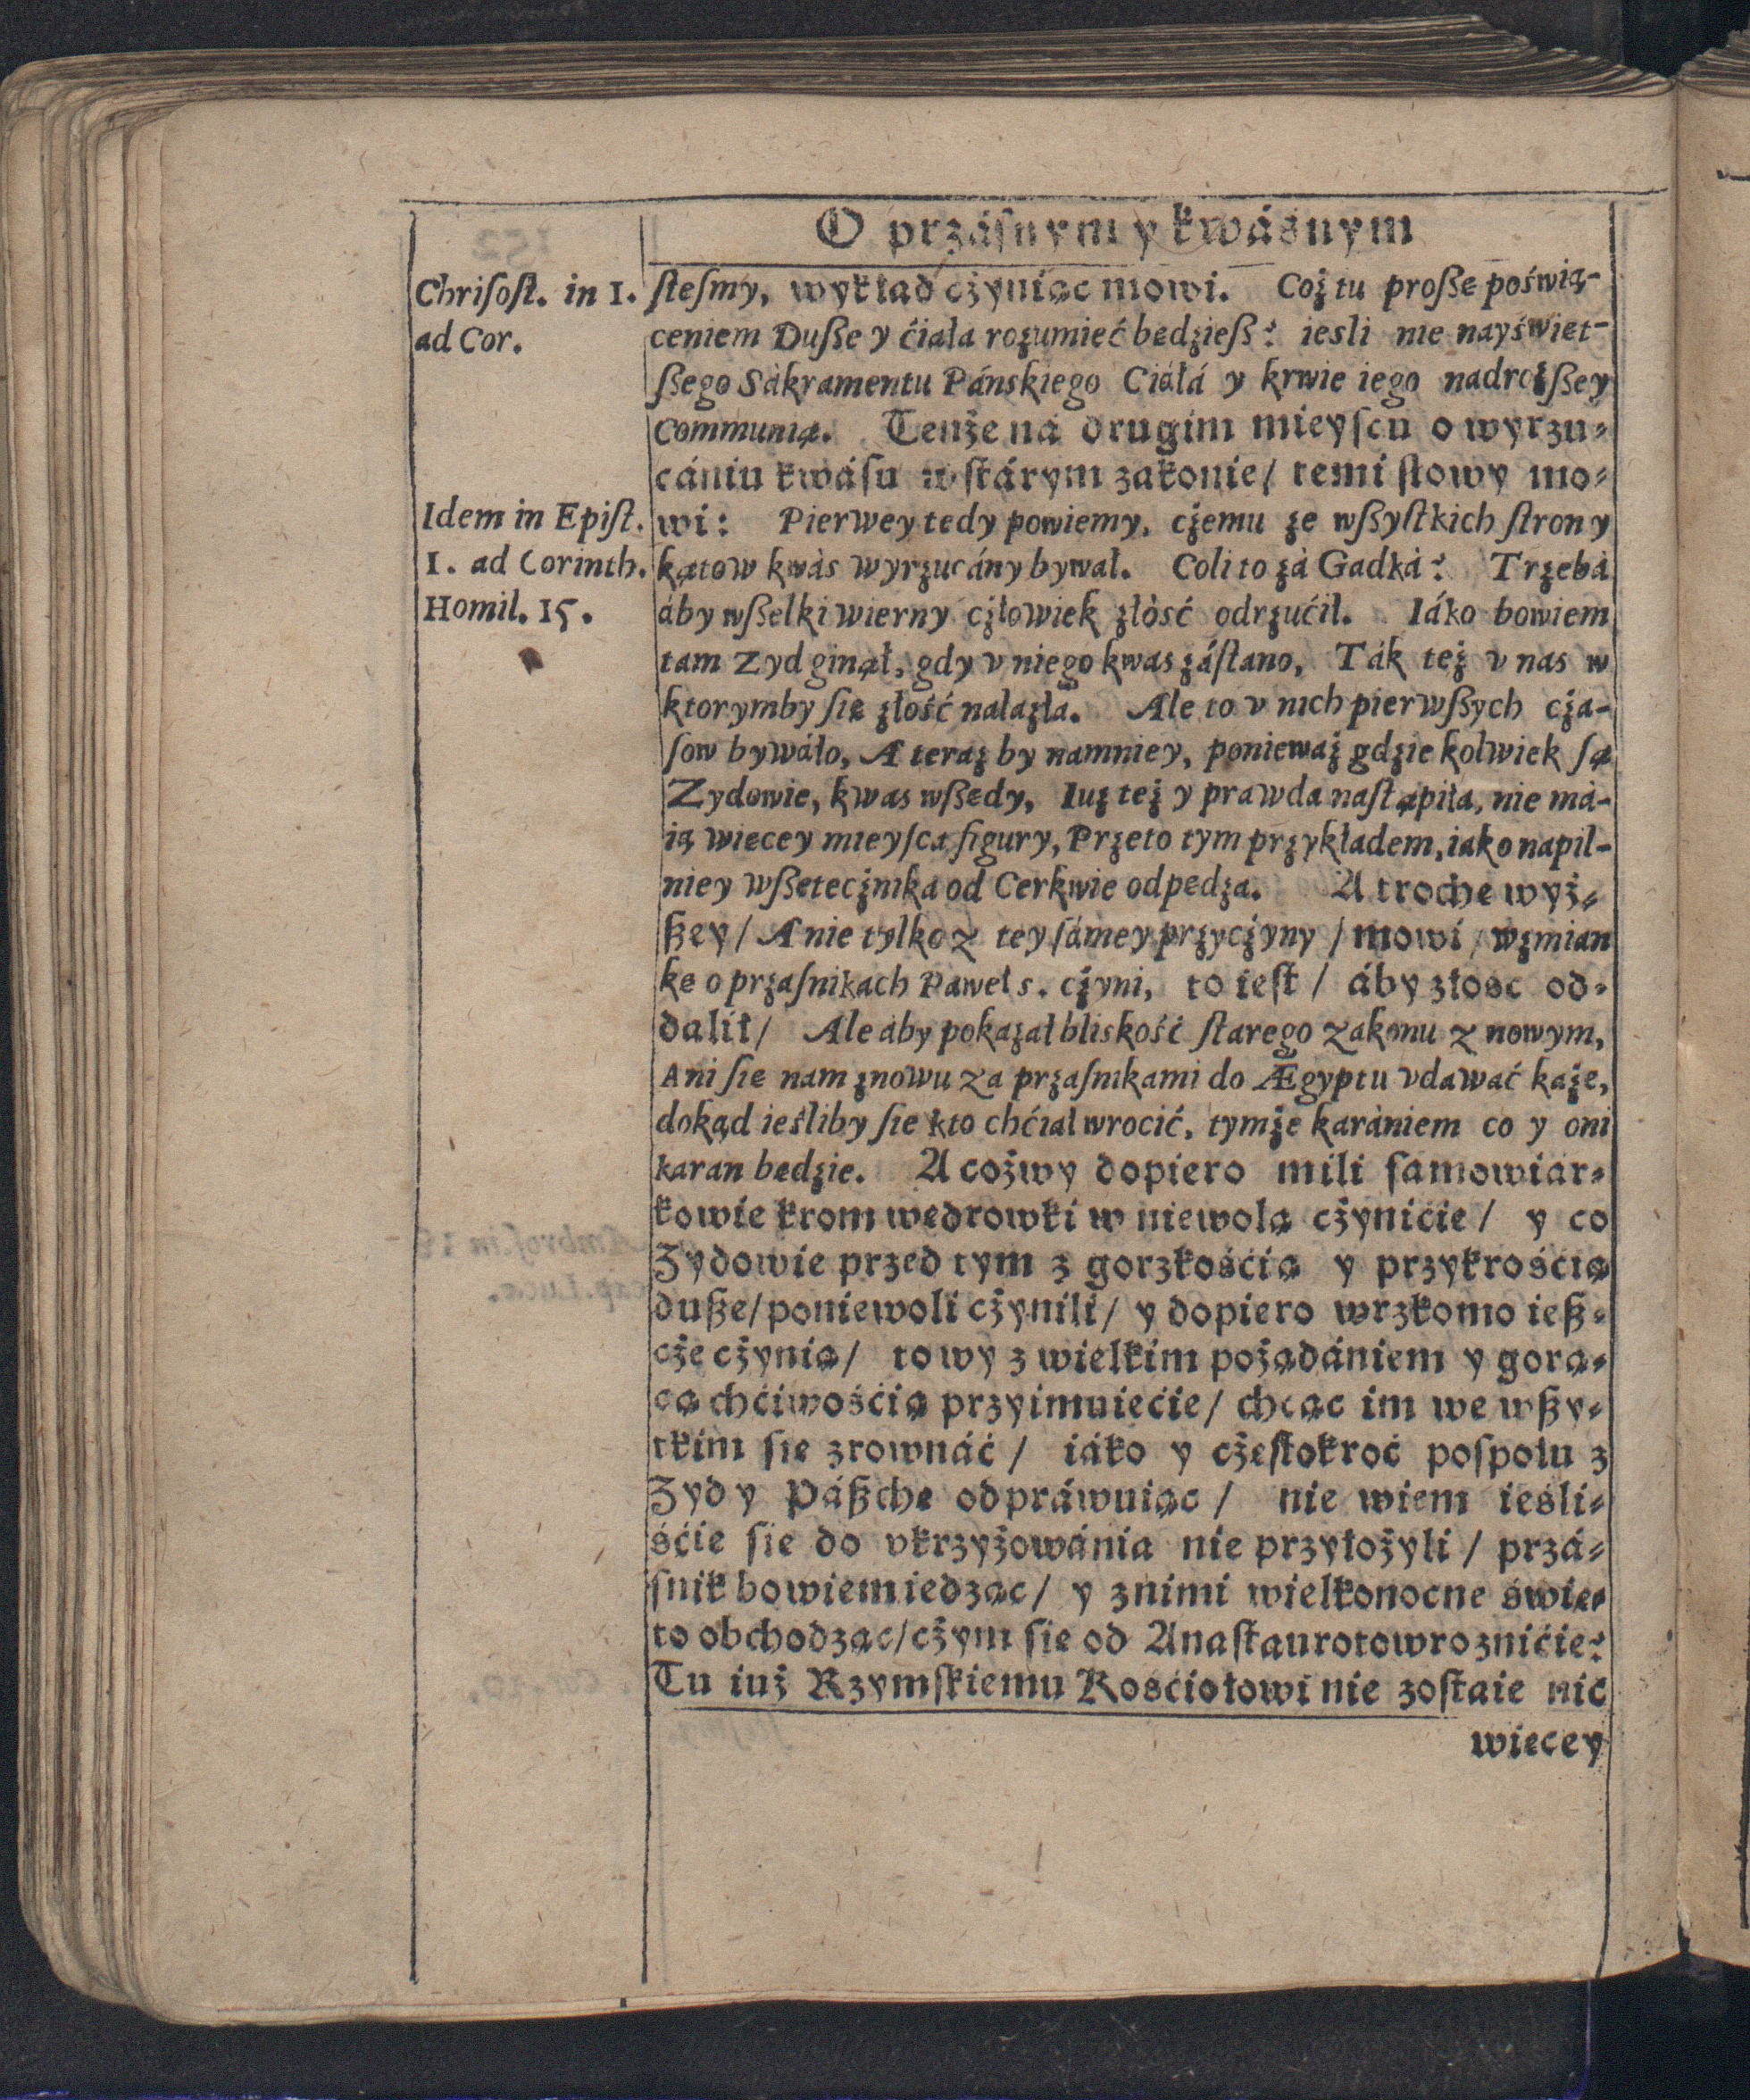 O przáſnym y kwáśnym
Chriſoſt. in 1.
ad Cor.
ſteſmy, wykład cżyniąc mowi. Coż tu proſße poświą-
ceniem Duſße y ćiała rozumieć będzieſß? iesli nie nayświęt-
ſßego Sàkramentu Pánskiego Ciáłá y krwie iego nadroſßey
Communią. Tenże ná drugim mieyſcu o wyrzu-
cániu kwáſu w ſtárym zakonie/ temi ſłowy mo-
Idem in Epiſt.
1. ad Corinth.
Homil. 15.
wi: Pierwey tedy powiemy, cżemu ze wſßyſtkich ſtron y
kątow kwàs wyrzucány bywał. Coli to zà Gadkà? Trzebà
áby wſßelki wierny cżłowiek złość odrzućił. Iáko bowiem
tam Zyd ginął, gdy v niego kwas záſtano, Ták też v nas w
ktorymby ſię złość nalazła. Ale to v nich pierwſßych cża-
ſow bywáło, A teraz by namniey, ponieważ gdzie kolwiek ſą
Zydowie, kwas wſßędy, Iuż też y prawda naſtąpiła, nie ma-
ią więcey mieyſca figury, Przeto tym przykładem, iako napil-
niey wſßetecżnika od Cerkwie odpędza. A trochę wyż-
ßey/ A nie tylko z tey ſámey przycżyny / mowi, wzmian
kę o przaſnikach Paweł s. cżyni, to ieſt / áby złosc od-
dalił/ Ale aby pokazał bliskość ſtarego zakonu z nowym,
Ani ſię nam znowu za przaſnikami do Ægyptu vdawać każe,
dokąd ieśliby ſię kto chćiał wrocić, tymże karàniem co y oni
karan będzie. A coż wy dopiero mili ſamowiar-
kowie krom wędrowki w niewolą cżynićie / y co
Zydowie przed tym z gorzkośćią y przykrośćią
dußę/ poniewoli cżynili/ y dopiero wrzkomo ieß-
cże cżynią/ to wy z wielkim pożądániem y gorą-
cą chćiwośćią przyimuiećie/ chcąc im we wßy-
tkim ſię zrownáć / iáko y cżęſtokroć poſpołu z
Zydy Páßchę odpráwuiąc / nie wiem iesli-
śćie ſię do vkrzyżowánia nie przyłożyli / przá-
ſnik bowiem iedząc/ y z nimi wielkonocne świę-
to obchodząc/ cżym ſię od Anaſtaurotow roznićie?
Tu iuż Rzymſkiemu Kośćiołowi nie zoſtaie nic
więcey